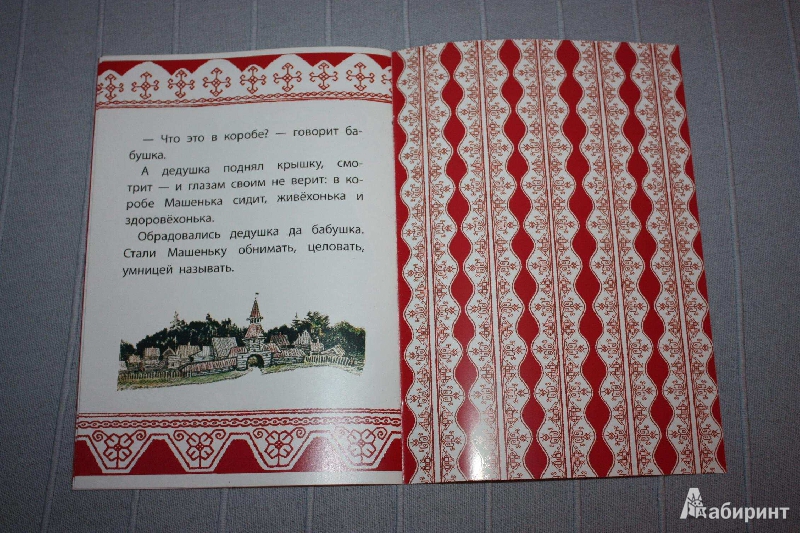 — Что это в коробе? — говорит ба-
бушка.
А дедушка поднял крышку, смо-
трит — и глазам своим не верит: в ко-
робе Машенька сидит, живёхонька и
здоровёхонька.
Обрадовались дедушка да бабушка.
Стали Машеньку обнимать, целовать,
умницей называть.
Лабиринт